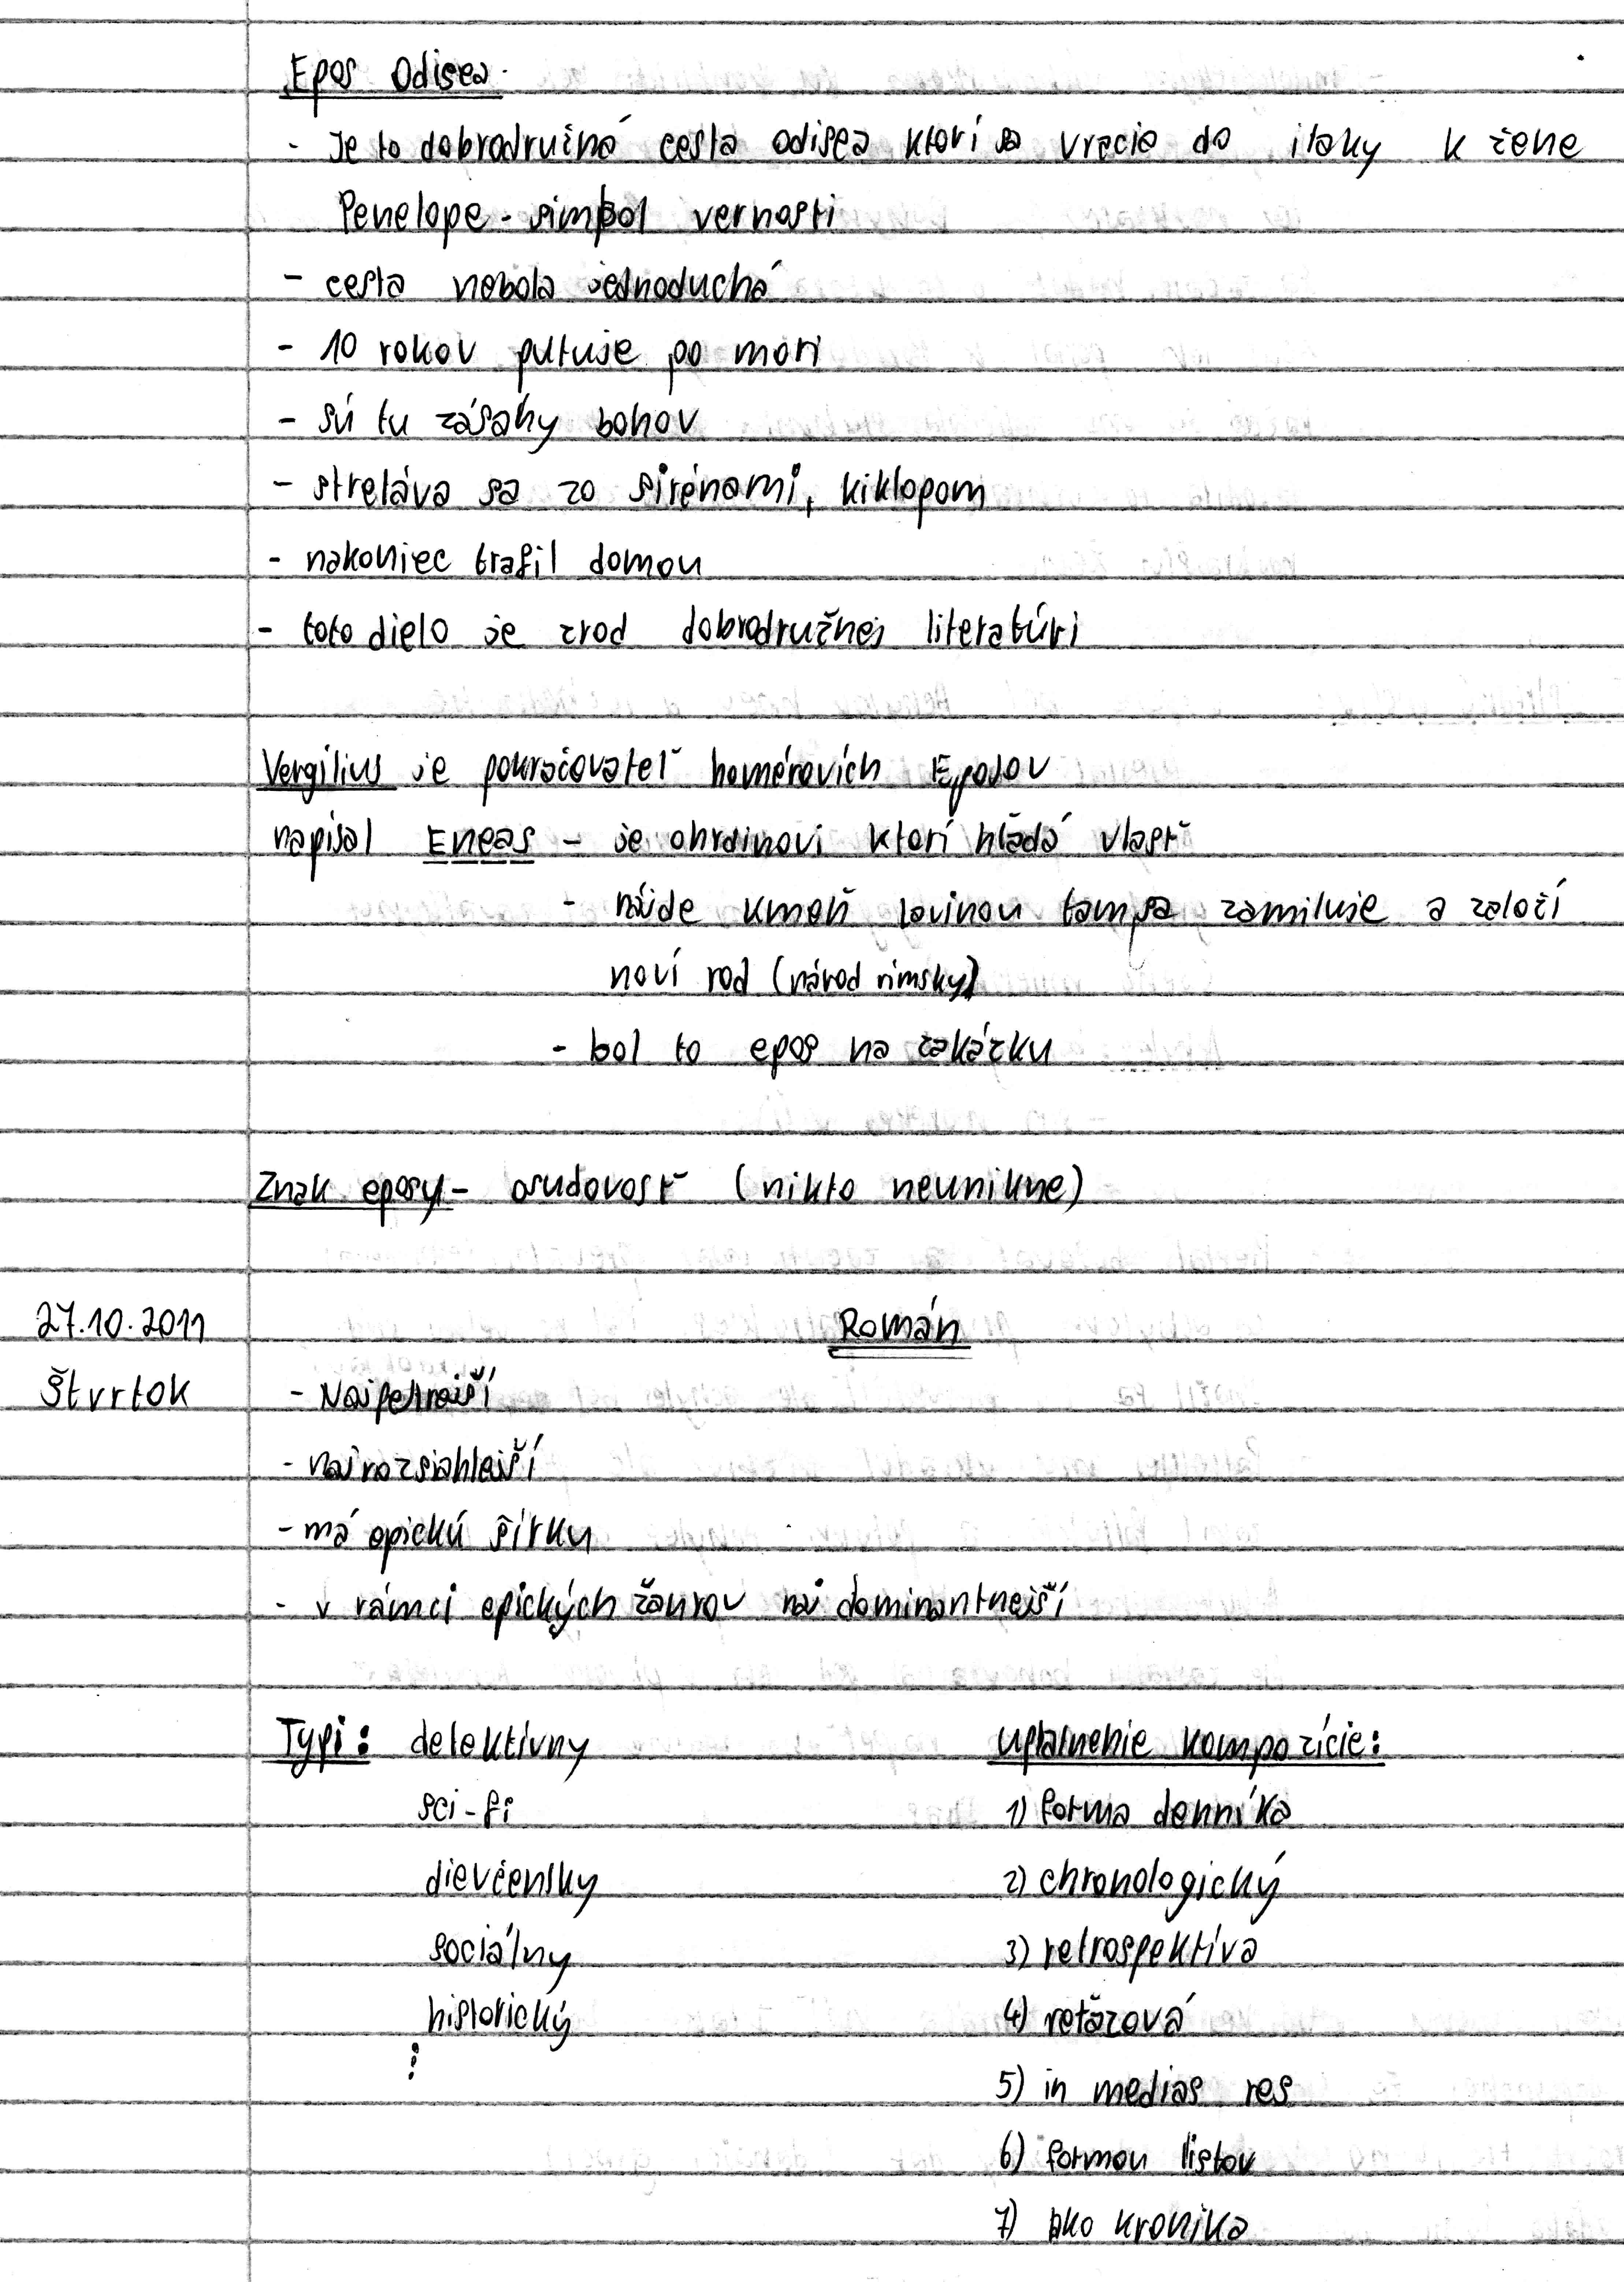 Epos Odisea
- Je to dobrodružná cesta odisea ktorí sa vracia do itaky k žene
Penelope - simbol vernosti
- cesta nebola jednoduchá
- 10 rokov putuje po mori
- sú tu zásahy bohov
- streláva sa zo sirénami, kiklopom
- nakoniec trafil domou
- toto dielo je zrod dobrodružnej literatúri
Vergílius je pokračovateľ homérovích Eposov
napísal Eneas - je ohrdinovi ktorí hľadá vlasť
- nájde kmeň lavinou tam sa zamiluje a založí
noví rod (národ rímsky)
- bol to epos na zakázku
Znak eposu - osudovosť (nikto neunikne)
27.10.2011 Román
Štvrtok - Najpestrejší
- najrozsiahlejší
- má epickú šírku
- v rámci epických žánrov naj dominantnejší
Typi: detektívny Uplatnenie kompozície:
sci-fi 1) forma denníka
dievčenský 2) chronologický
sociálny 3) retrospektíva
historický 4) reťazová
⋮ 5) in medias res
6) formou listov
7) ako kronika